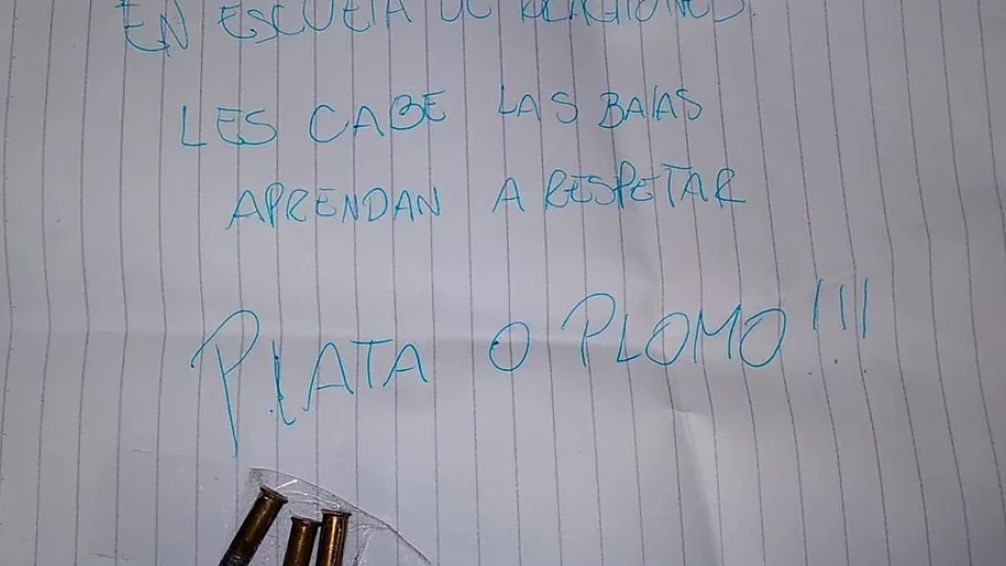 EN ESCUELA DE
LES CABE LAS BALAS
APRENDAN A RESPETAR
PLATA O PLOMO!!!